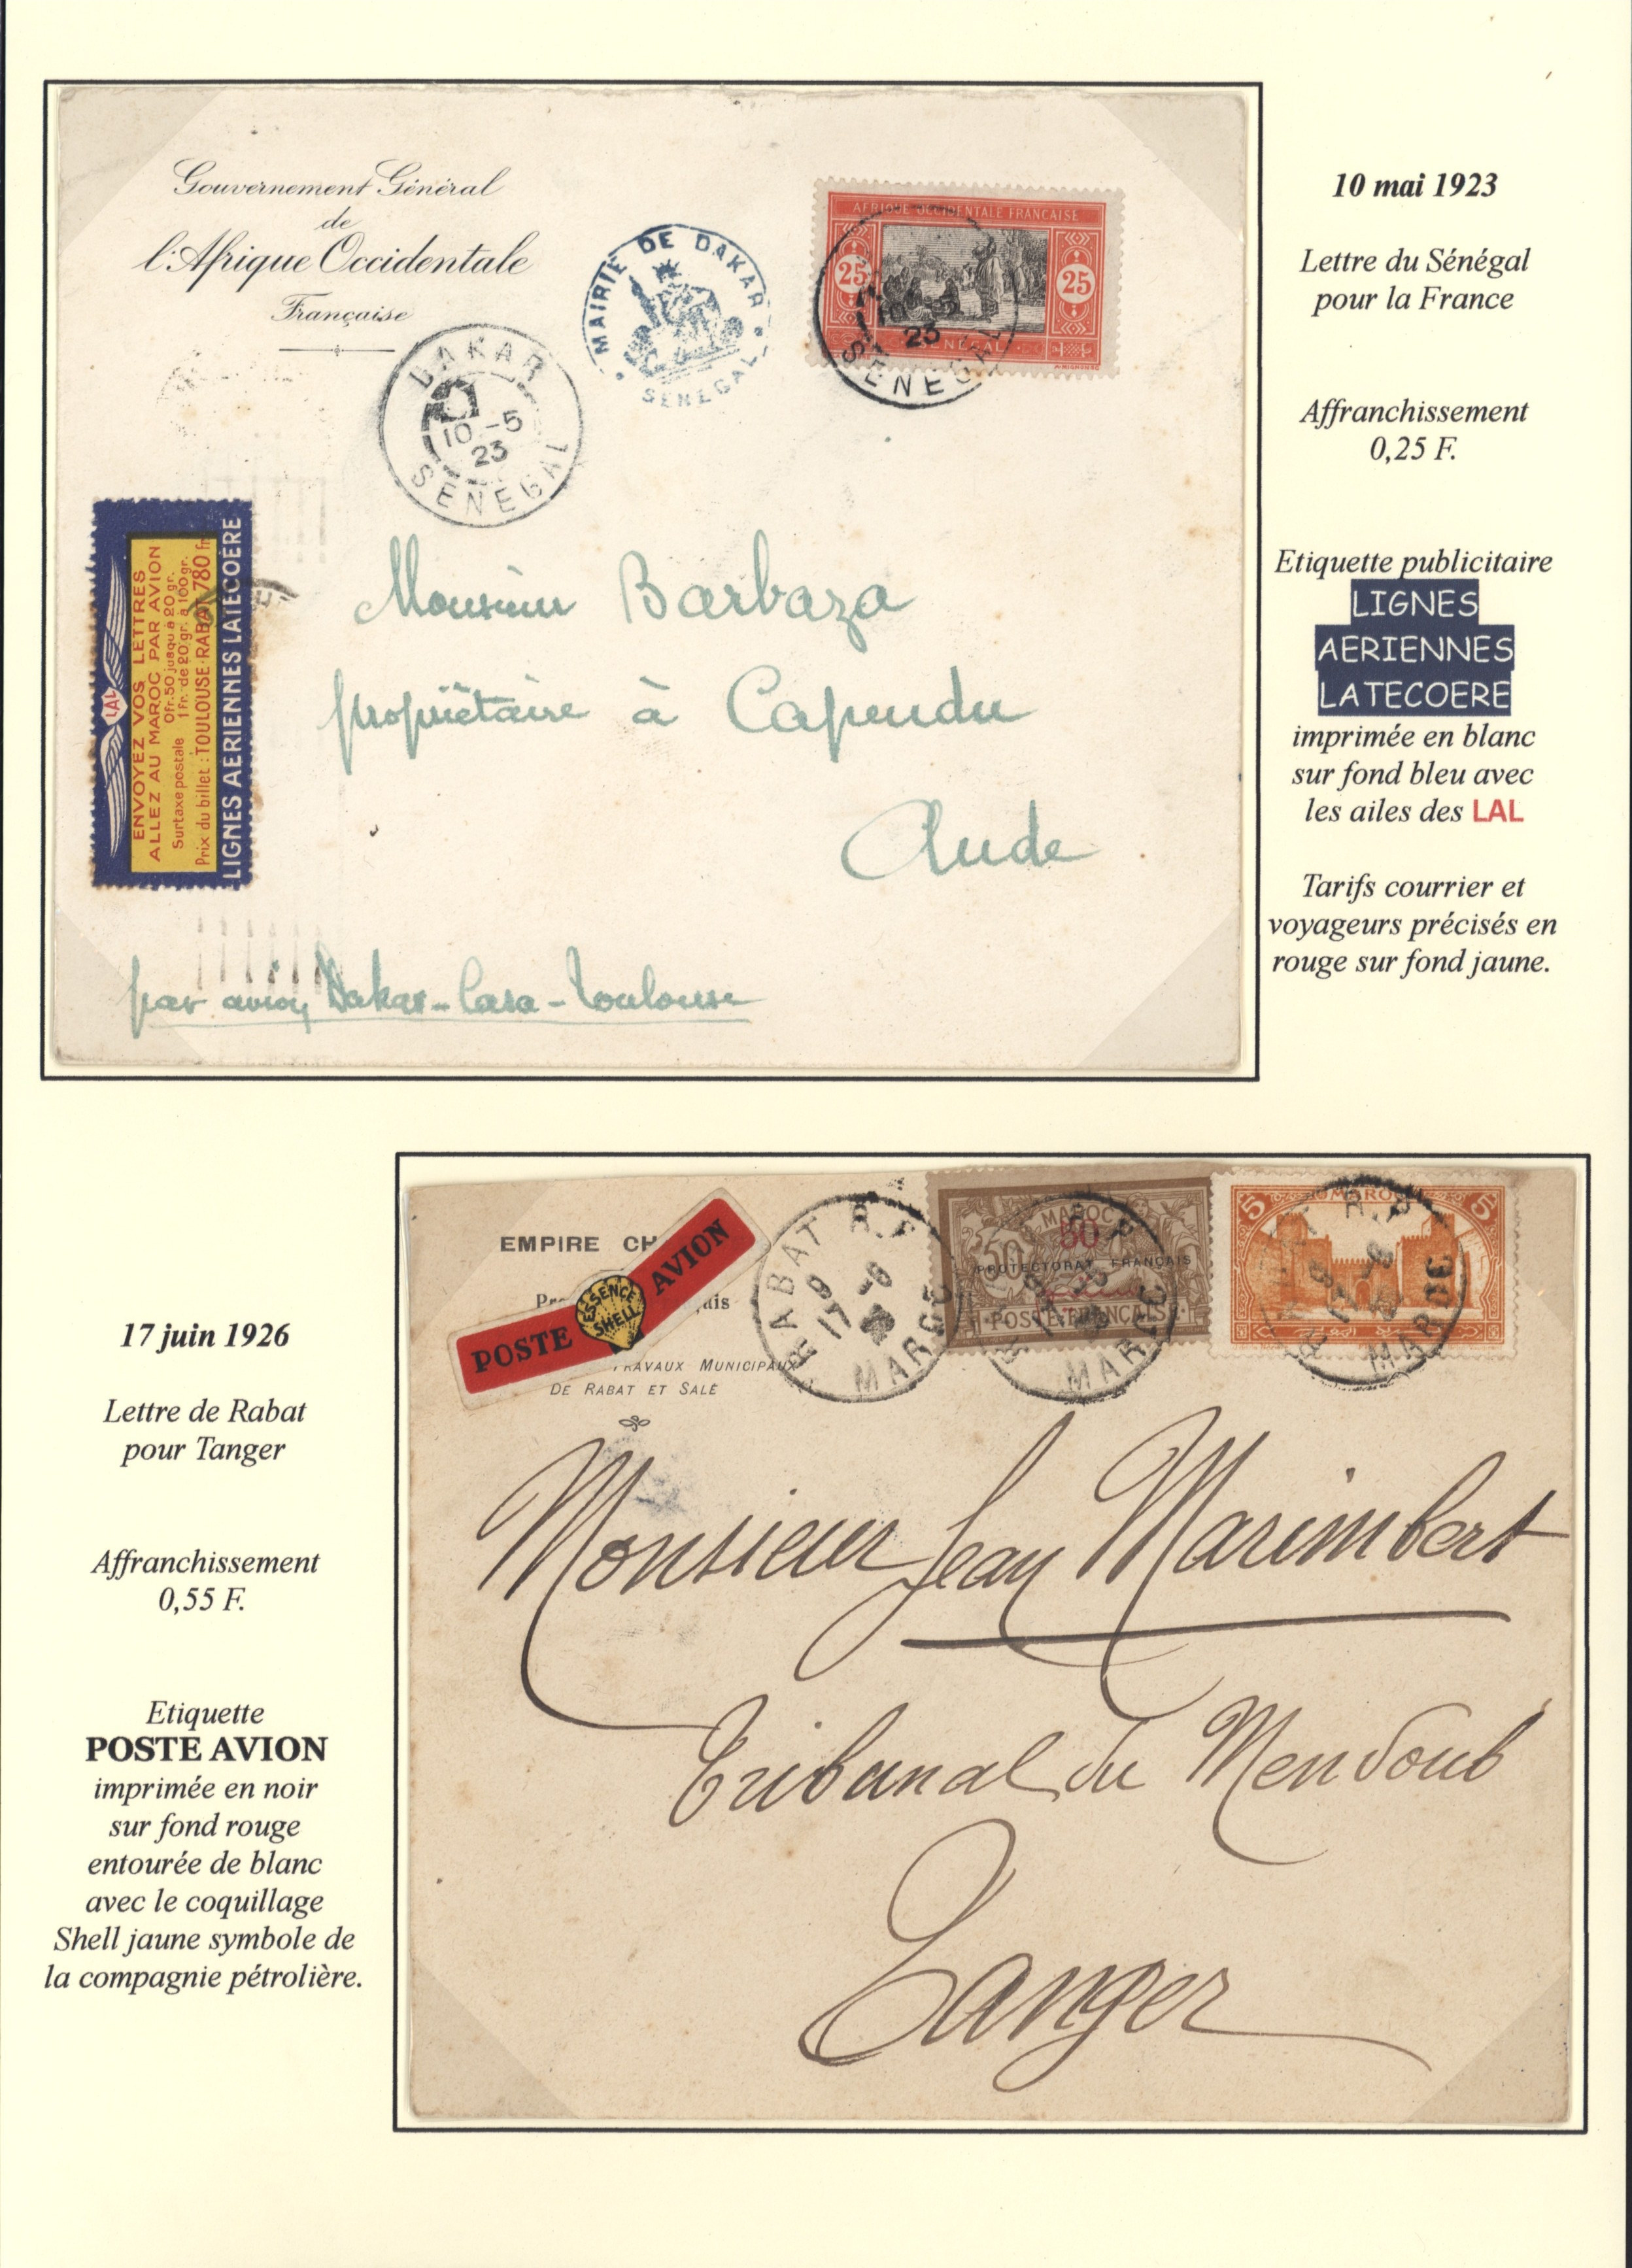 Gouvernement Général
de
l'Afrique Occidentale
Française
MAIRIE DE DAKAR
SENEGAL
AFRIQUE OCCIDENTALE FRANÇAISE
25 25
SÉNÉGAL
10 5
23
SENEGAL
DAKAR
10 -5
23
SENEGAL
ENVOYEZ VOS LETTRES
ALLEZ AU MAROC PAR AVION
Surtaxe postale 0fr.50 jusqu'à 20 gr.
1 fr. de 20 gr. à 100 gr.
Prix du billet : TOULOUSE-RABAT 780 fr
LIGNES AERIENNES LATÉCOÈRE
LAL
Monsieur Barbaza
propriétaire à Capendu
Aude
par avion Dakar-Casa-Toulouse
10 mai 1923
Lettre du Sénégal
pour la France
Affranchissement
0,25 F.
Etiquette publicitaire
LIGNES
AERIENNES
LATECOERE
imprimée en blanc
sur fond bleu avec
les ailes des LAL
Tarifs courrier et
voyageurs précisés en
rouge sur fond jaune.
17 juin 1926
Lettre de Rabat
pour Tanger
Affranchissement
0,55 F.
Etiquette
POSTE AVION
imprimée en noir
sur fond rouge
entourée de blanc
avec le coquillage
Shell jaune symbole de
la compagnie pétrolière.
EMPIRE CH
POSTE AVION
ESSENCE
SHELL
TRAVAUX MUNICIPAUX
DE RABAT ET SALÉ
RABAT R.P
17 -6
MAROC
MAROC
50
50
PROTECTORAT FRANÇAIS
POSTE FRANÇAISE
MAROC
5 MAROC 5
MAROC
Monsieur Jean Marimbert
Tribunal du Mendoub
Tanger